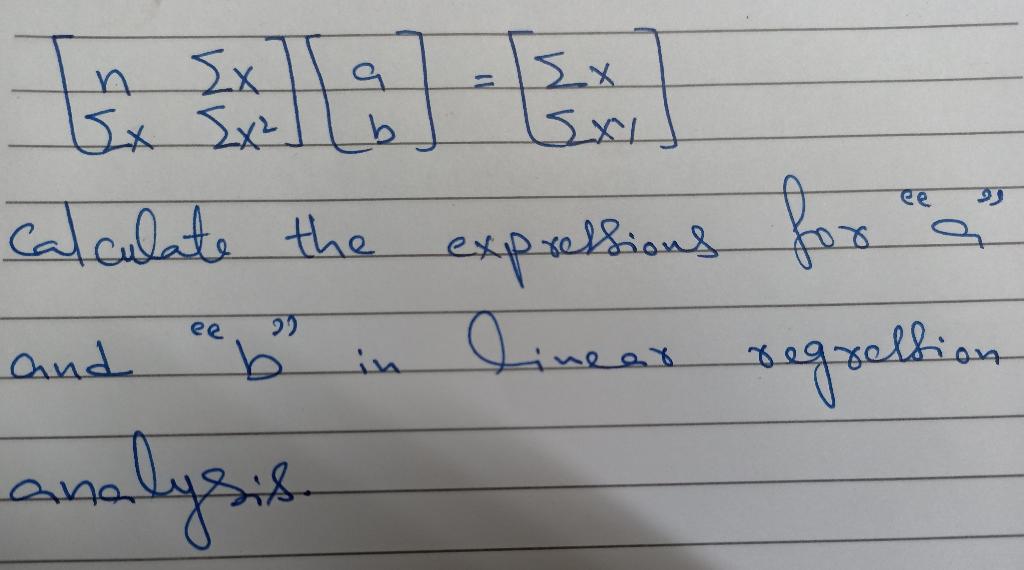 [n Σx] [a] = [Σx]
[Σx Σx²] [b] [Σxy]
Calculate the expressions for "a"
and "b" in linear regression
analysis.